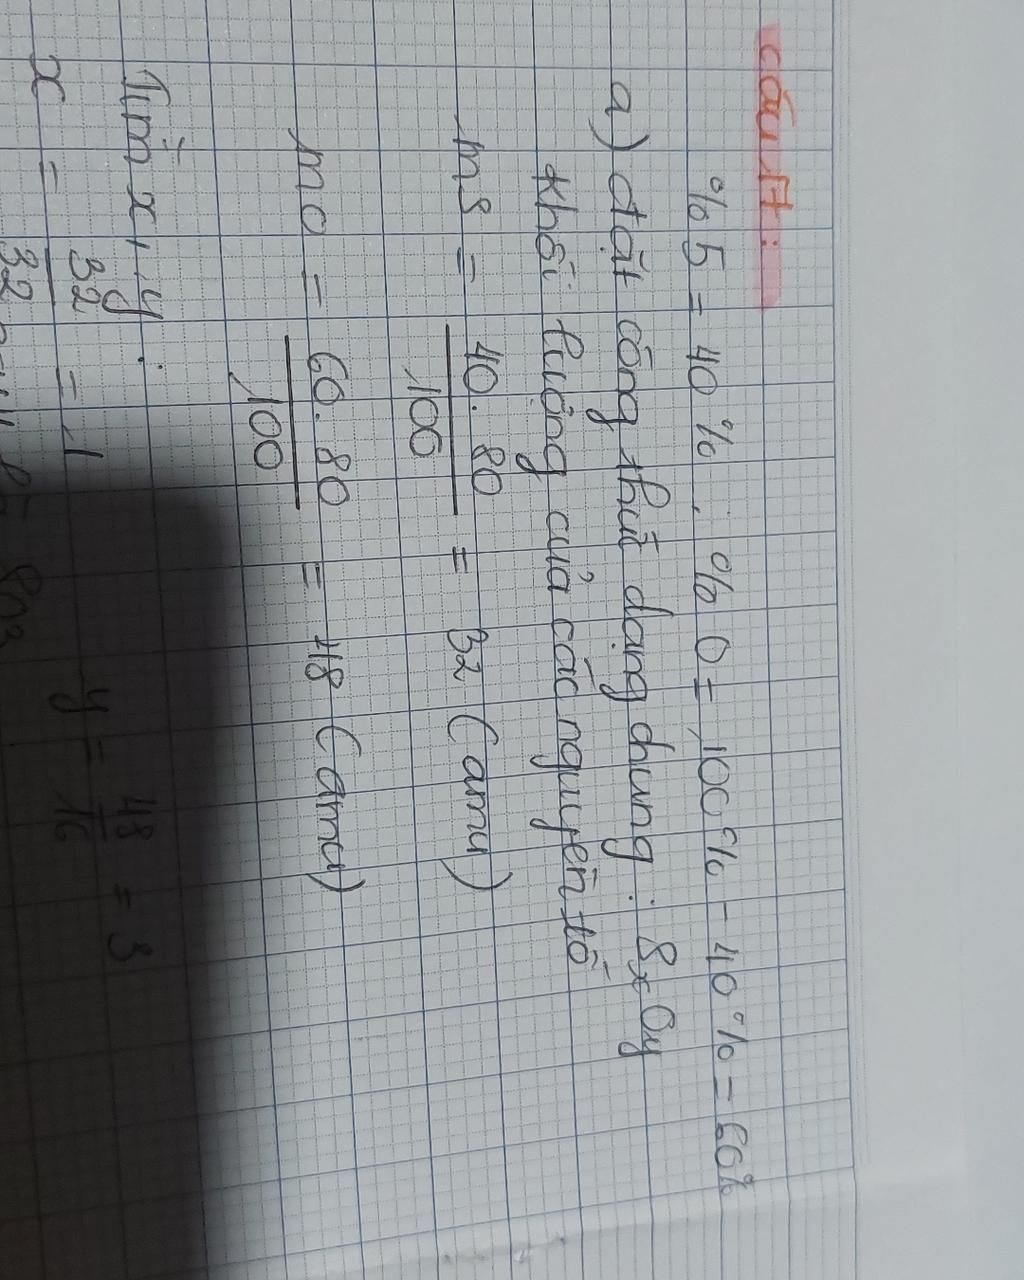 câu 17:
% S = 40 % ; % O = 100% - 40% = 60%
a) đặt công thức dạng chung: SxOy
Khối lượng của các nguyên tố
mS = 40.80 / 100 = 32 (amu)
mO = 60.80 / 100 = 48 (amu)
Tìm x, y:
x = 32 / 32 = 1 y = 48 / 16 = 3